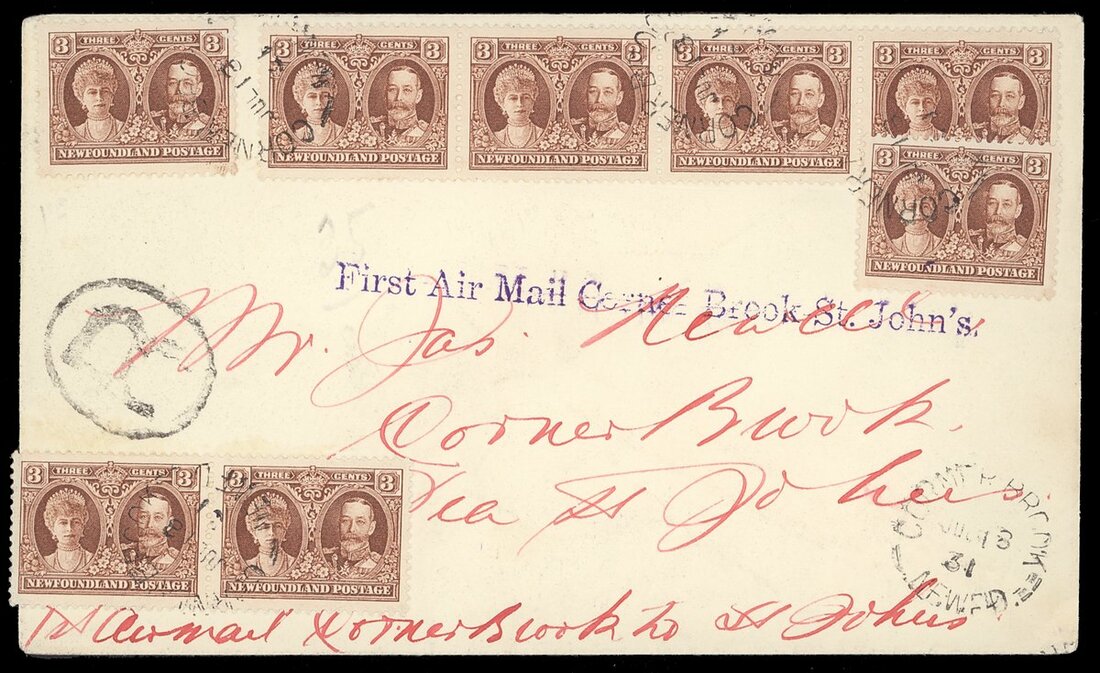 3 THREE CENTS 3
NEWFOUNDLAND POSTAGE
3 THREE CENTS 3
NEWFOUNDLAND POSTAGE
3 THREE CENTS 3
NEWFOUNDLAND POSTAGE
3 THREE CENTS 3
NEWFOUNDLAND POSTAGE
3 THREE CENTS 3
3 THREE CENTS 3
NEWFOUNDLAND POSTAGE
First Air Mail Corner Brook-St. John's.
R
Mr. Jas. Newell
Corner Brook.
Via St Johns.
3 THREE CENTS 3
NEWFOUNDLAND POSTAGE
3 THREE CENTS 3
NEWFOUNDLAND POSTAGE
CORNER BROOK
JUL 18
31
NEWF'D
1st Airmail Corner Brook to St Johns